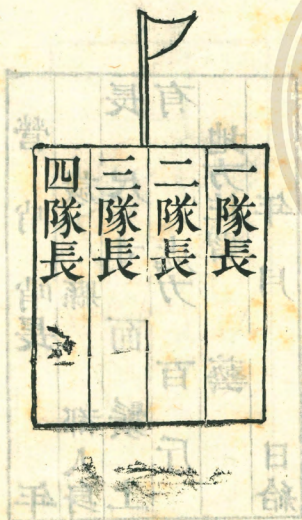 一隊長
二隊長
三隊長
四隊長